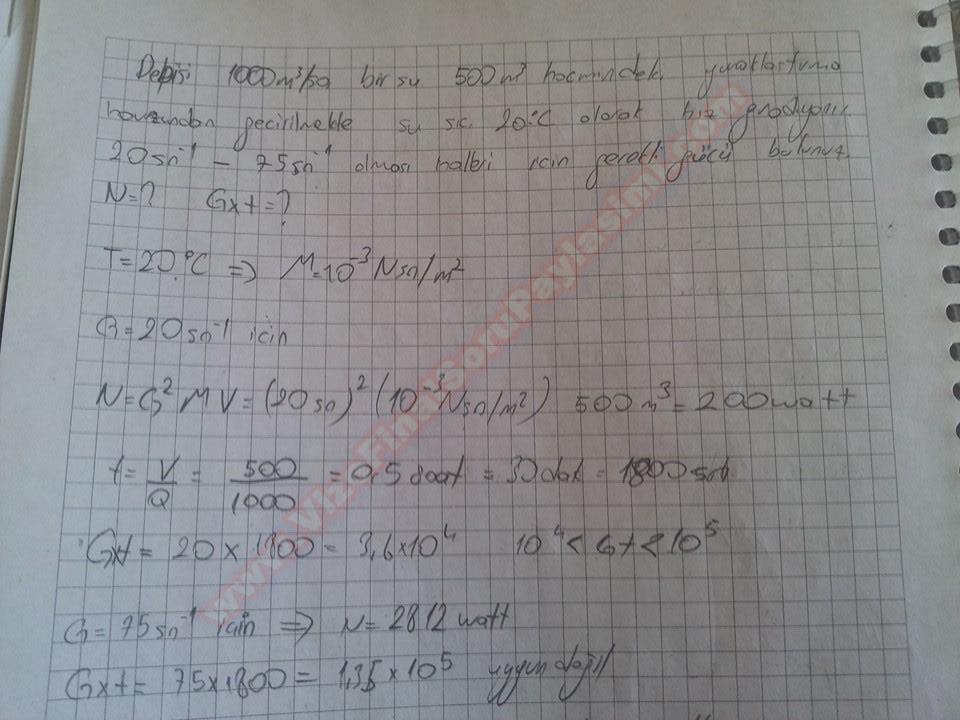 Debisi 1000m³/sa bir su 500m³ hacmindeki yumaklaştırma
havuzundan geçirilmekte su sıc. 20°C olarak hız gradyanı
20sn⁻¹ - 75sn⁻¹ olması halleri için gerekli gücü bulunuz.
N=? Gxt=?
T=20°C => M=10⁻³ Nsn/m²
G=20sn⁻¹ için
N=G²MV=(20sn)²(10⁻³Nsn/m²) 500m³=200watt
t=V/Q=500/1000=0,5 saat=30dak=1800sn
Gxt=20x1800=3,6x10⁴ 10⁴<Gt<10⁵
G=75sn⁻¹ için => N=2812 watt
Gxt=75x1800=1,35x10⁵ uygun değil